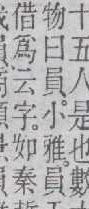 十五人是也數
物曰員小雅員
借爲云字。如秦